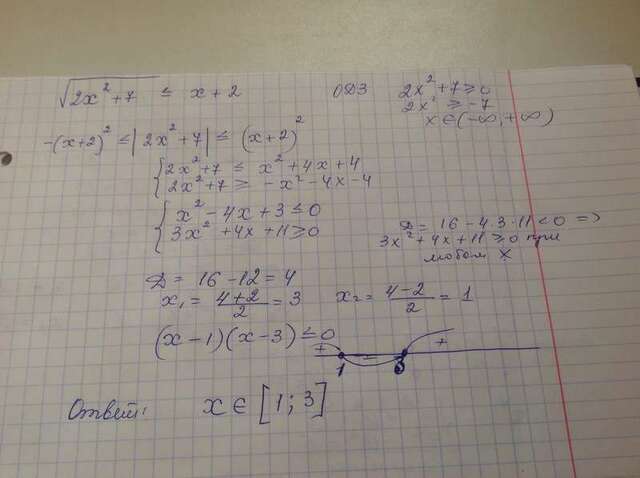 √(2x²+7) ≤ x+2
ОДЗ 2x²+7≥0
2x² ≥ -7
x∈(-∞,+∞)
-(x+2)² ≤ |2x²+7| ≤ (x+2)²
{2x²+7 ≤ x²+4x+4
2x²+7 ≥ -x²-4x-4
{x²-4x+3≤0
3x²+4x+11≥0
Д= 16-4·3·11<0 =>
3x²+4x+11≥0 при
любом x
Д= 16-12=4
x₁= (4+2)/2 =3 x₂= (4-2)/2 = 1
(x-1)(x-3)≤0
+ - +
1 3
Ответ: x∈[1;3]